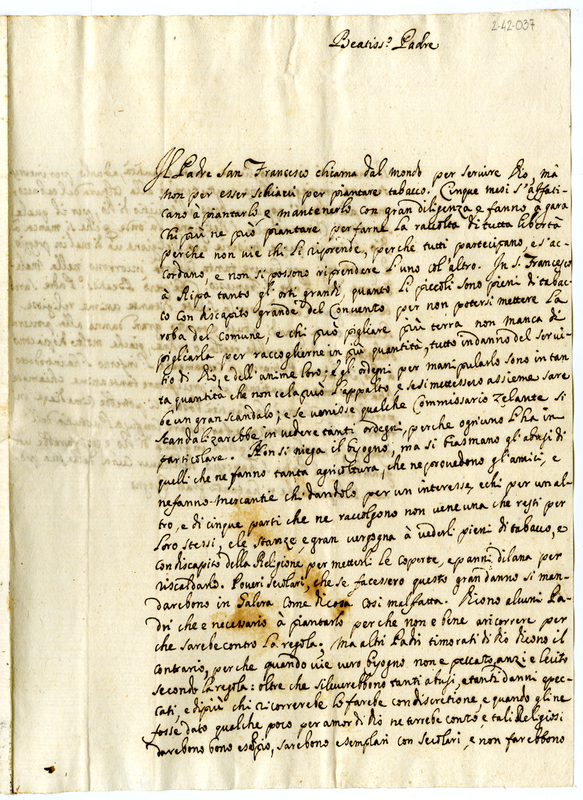 2-42-037
Beatiss.º Padre
Il Padre San Francesco chiama dal mondo per servire Dio, mà
non per esser schiavi per piantare tabacco. Cinque mesi s'affati-
cano a piantarlo e mantenerlo con gran diligenza e fanno a gara
chi più ne può piantare per farne la raccolta di tutta libertà
perche non vie chi si riprende, perche tutti partecipano, e s'ac-
cordano, e non si possono riprendere l'uno col'altro. In S. Francesco
à Ripa tanto gl'orti grandi, quanto li piccoli sono pieni di tabac-
co con discapito grande del Convento per non potersi mettere la
roba del comune, e chi può pigliare più terra non manca di
pigliarla per raccoglierne in più quantità, tutto in danno del servi-
tio di Dio, e dell'anime loro; e gl'ordegni per manipularlo sono in tan-
ta quantità che non cela può l'appalto e se si mettessero assieme sare
be un gran scandalo; e se venisse qualche Commissario zelante si
scandalizarebbe in vedere tanti ordegni, perche ogn'uno l'ha in
particolare. Non si niega il bisogno, ma si biasmano gl'abusi di
quelli che ne fanno tanta agricoltura, che ne provedono gl'amici, e
ne fanno mercantie chi dandolo per un interesse, e chi per un al-
tro, e di cinque parti che ne raccolgono non vene una che resti per
loro stessi, e le stanze, e gran vergogna à vederli pieni di tabacco, e
con discapito della Religione, per metterli le coperte, e panni di lana per
riscaldarlo. Poveri secolari, che se facessero questo gran danno si man-
darebono in Galera come di cosa cosi mal fatta. Dicono alcuni Pa-
dri che e necessario à piantarlo perche non e bene a ricorrere per
che sarebe contro la regola. Ma altri Padri timorati di Dio dicono il
contrario, perche quando vie vero bisogno non e peccato, anzi e lecito
secondo la regola: oltre che si leverebbono tanti abusi, e tanti danni e pec-
cati, e di più chi ricorrerebe lo farebe con discretione, e quando gli ne
fosse dato qualche poco per amor di Dio ne terrebe conto, e tali Religiosi
darebono bono esempio, sarebono esemplari con secolari, e non farebbono